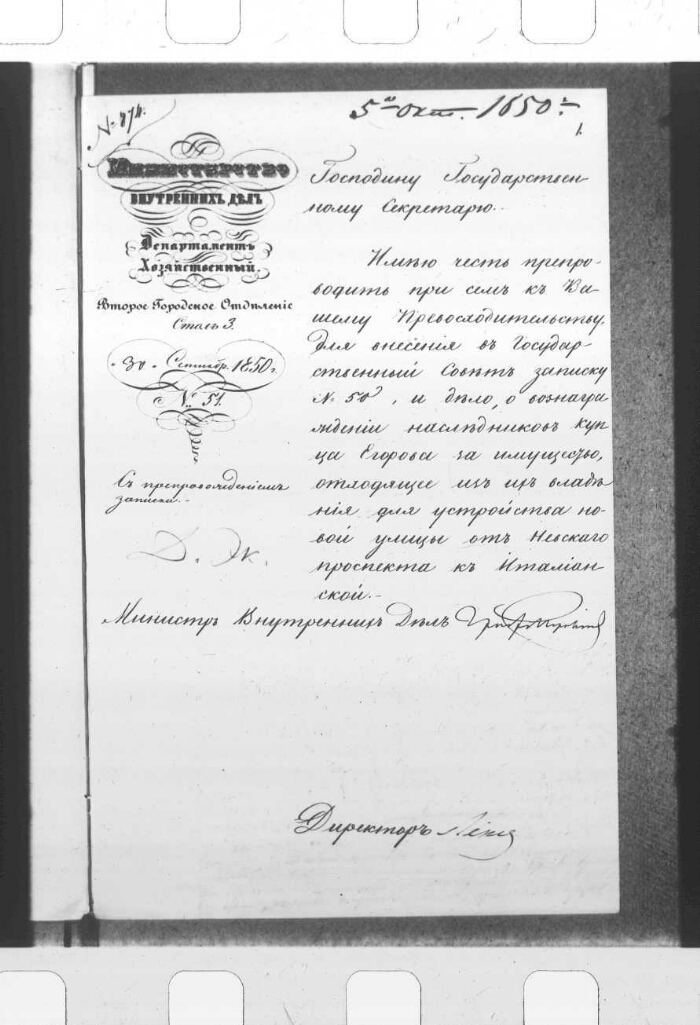 5го Окт. 1850 г.
1.
Министерство
внутреннихъ дѣлъ
Департаментъ
Хозяйственный.
Второе Городское Отдѣленіе
Столъ 3.
30 Сентябр. 1850 г.
№ 51.
Съ препровожденіемъ
записки.
Господину Государствен-
ному Секретарю.
Имѣю честь препро-
водить при семъ къ Ва-
шему Превосходительству,
для внесенія въ Государ-
ственный Совѣтъ записку
№ 50, и дѣло, о вознагра-
жденіи наслѣдниковъ куп-
ца Егорова за имущество,
отходящее изъ ихъ владѣ-
нія для устройства но-
вой улицы отъ Невскаго
проспекта къ Италіан-
ской.
Министръ Внутреннихъ Дѣлъ
Директоръ